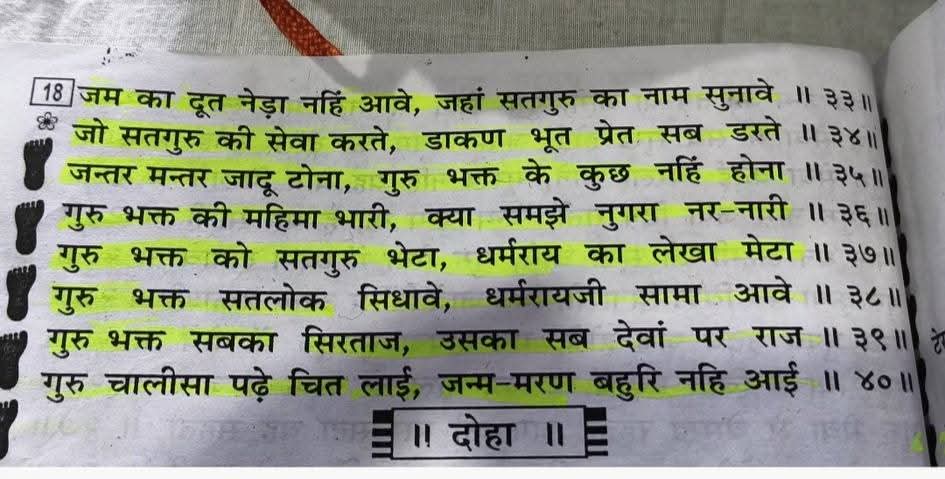 18 जम का दूत नेड़ा नहिं आवे, जहां सतगुरु का नाम सुनावे ॥ ३३॥
जो सतगुरु की सेवा करते, डाकण भूत प्रेत सब डरते ॥ ३४॥
जन्तर मन्तर जादू टोना, गुरु भक्त के कुछ नहिं होना ॥ ३५॥
गुरु भक्त की महिमा भारी, क्या समझे नुगरा नर-नारी ॥ ३६॥
गुरु भक्त को सतगुरु भेटा, धर्मराय का लेखा मेटा ॥ ३७॥
गुरु भक्त सतलोक सिधावे, धर्मरायजी सामा आवे ॥ ३८॥
गुरु भक्त सबका सिरताज, उसका सब देवां पर राज ॥ ३९॥
गुरु चालीसा पढ़े चित लाई, जन्म-मरण बहुरि नहि आई ॥ ४०॥
॥ दोहा ॥